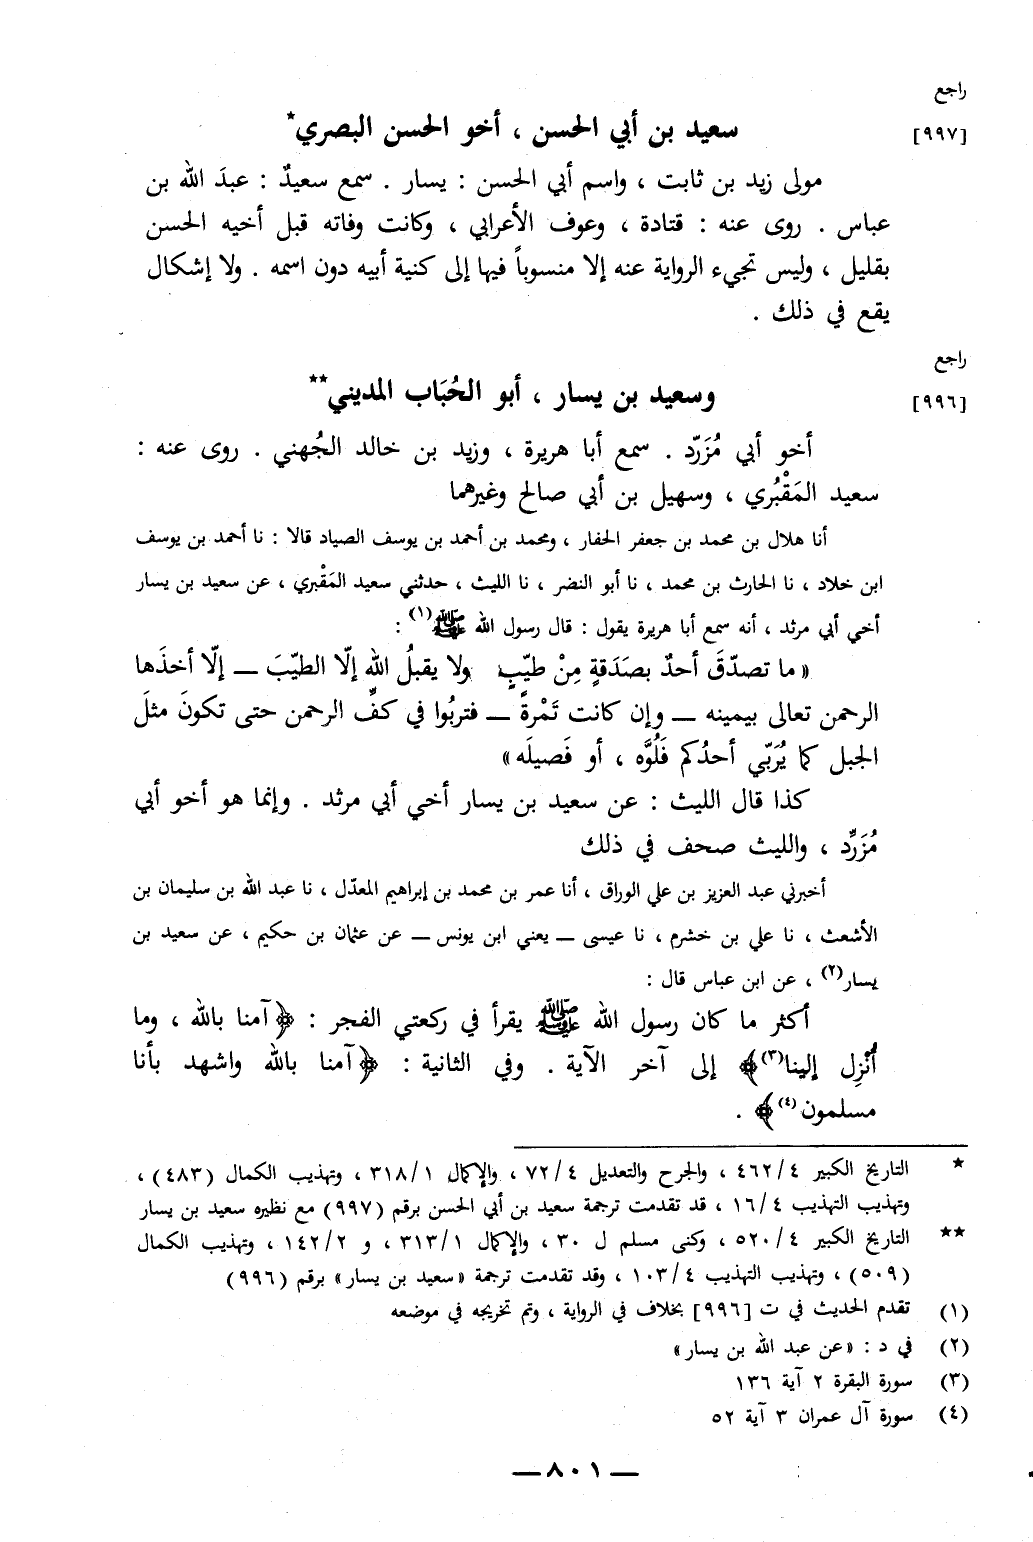 راجع
[٩٩٧] سعيد بن أبي الحسن ، أخو الحسن البصري*
مولى زيد بن ثابت ، واسم أبي الحسن : يسار . سمع سعيدٌ : عبدَ الله بن
عباس . روى عنه : قتادة ، وعوف الأعرابي ، وكانت وفاته قبل أخيه الحسن
بقليل ، وليس تجيء الرواية عنه إلا منسوباً فيها إلى كنية أبيه دون اسمه . ولا إشكال
يقع في ذلك .
راجع
[٩٩٦] وسعيد بن يسار ، أبو الحُبَاب المديني**
أخو أبي مُزَرّد . سمع أبا هريرة ، وزيد بن خالد الجُهني . روى عنه :
سعيد المَقْبُري ، وسهيل بن أبي صالح وغيرهما
أنا هلال بن محمد بن جعفر الحفار ، ومحمد بن أحمد بن يوسف الصياد قالا : نا أحمد بن يوسف
ابن خلاد ، نا الحارث بن محمد ، نا أبو النضر ، نا الليث ، حدثني سعيد المَقْبري ، عن سعيد بن يسار
أخي أبي مرثد ، أنه سمع أبا هريرة يقول : قال رسول الله ﷺ(١) :
« ما تصدّقَ أحدٌ بصَدَقةٍ مِنْ طيّبٍ ولا يقبلُ الله إلّا الطيّبَ — إلّا أخذَها
الرحمن تعالى بيمينه — وإن كانت تَمْرةً — فتربُوا في كفِّ الرحمن حتى تكونَ مثلَ
الجبل كما يُرَبّي أحدُكم فَلُوَّه ، أو فَصيلَه »
كذا قال الليث : عن سعيد بن يسار أخي أبي مرثد . وإنما هو أخو أبي
مُزَرِّد ، والليث صحف في ذلك
أخبرني عبد العزيز بن علي الوراق ، أنا عمر بن محمد بن إبراهيم المعدّل ، نا عبد الله بن سليمان بن
الأشعث ، نا علي بن خشرم ، نا عيسى — يعني ابن يونس — عن عثمان بن حكيم ، عن سعيد بن
يسار(٢) ، عن ابن عباس قال :
أكثر ما كان رسول الله ﷺ يقرأ في ركعتي الفجر : ﴿آمنا بالله ، وما
أُنْزِل إلينا(٣)﴾ إلى آخر الآية . وفي الثانية : ﴿آمنا بالله واشهد بأنا
مسلمون(٤)﴾ .
* التاريخ الكبير ٤/ ٤٦٢ ، والجرح والتعديل ٤/ ٧٢ ، والإكمال ١/ ٣١٨ ، وتهذيب الكمال (٤٨٣) ،
وتهذيب التهذيب ٤/ ١٦ ، قد تقدمت ترجمة سعيد بن أبي الحسن برقم (٩٩٧) مع نظيره سعيد بن يسار
** التاريخ الكبير ٤/ ٥٢٠ ، وكنى مسلم ل ٣٠ ، والإكمال ١/ ٣١٣ ، و ٢/ ١٤٢ ، وتهذيب الكمال
(٥٠٩) ، وتهذيب التهذيب ٤/ ١٠٣ ، وقد تقدمت ترجمة «سعيد بن يسار» برقم (٩٩٦)
(١) تقدم الحديث في ت [٩٩٦] بخلاف في الرواية ، وتم تخريجه في موضعه
(٢) في د : «عن عبد الله بن يسار»
(٣) سورة البقرة ٢ آية ١٣٦
(٤) سورة آل عمران ٣ آية ٥٢
— ٨٠١ —